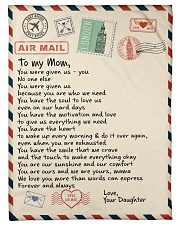 AIR MAIL
To my Mom,
You were given us - you
No one else
You were given us
because you are who we need
You have the soul to love us
even on our hard days
You have the motivation and love
to give us everything we need
You have the heart
to wake up every morning & do it over again,
even when you are exhausted
You have the smile that we crave
and the touch to make everything okay
You are our sunshine and our comfort
You are ours and we are yours, mama
We love you more than words can express
Forever and always
Love,
Your Daughter